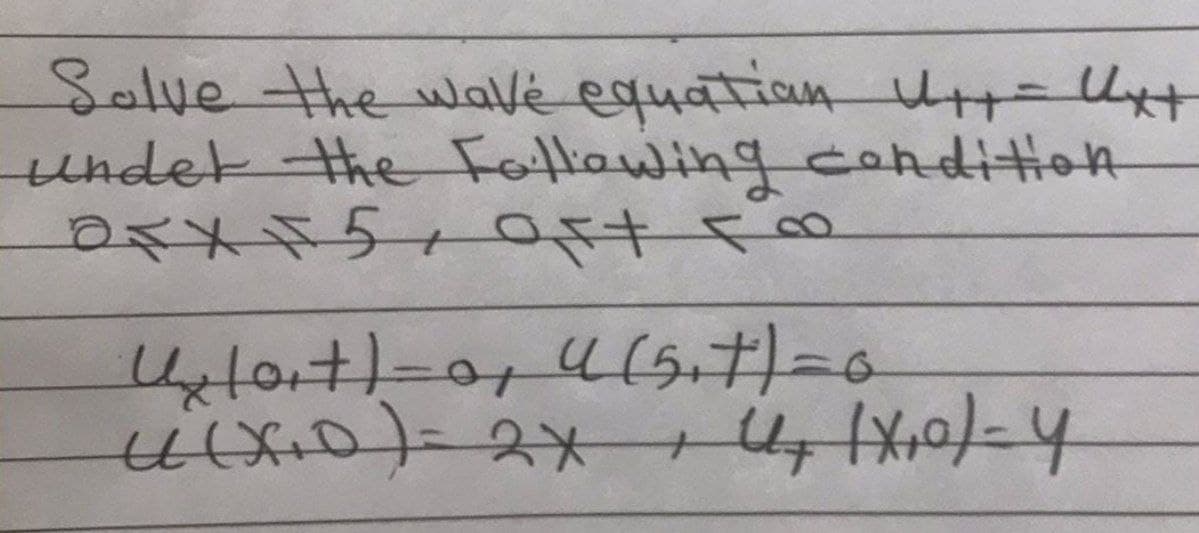 Solve the wave equation u_tt = u_xt
under the Following condition
0 ≤ x ≤ 5, 0 ≤ t < ∞
u_x(0,t)=0, u(5,t)=0
u(x,0)=2x, u_t(x,0)=4